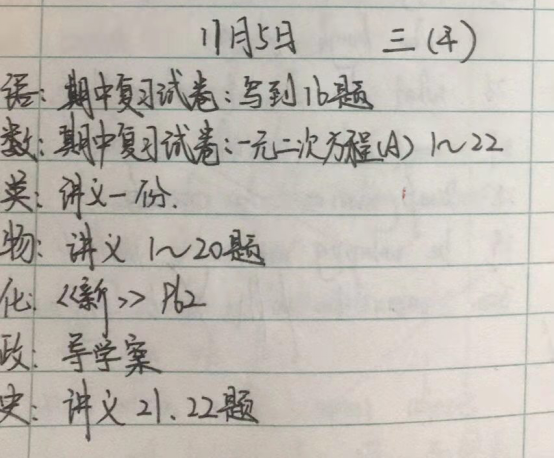 11月5日 三(4)
语：期中复习试卷：写到16题
数：期中复习试卷：一元二次方程(A) 1～22
英：讲义一份.
物：讲义 1～20题
化：《新》 P62
政：导学案
史：讲义 21、22题